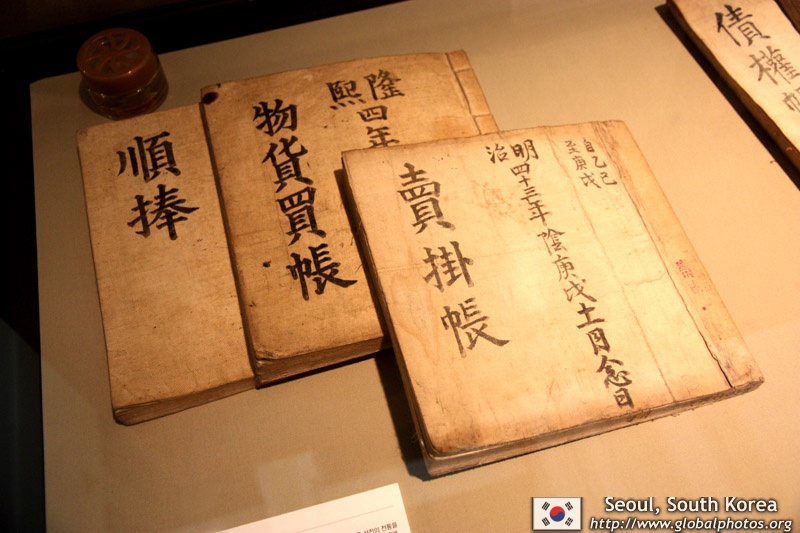 順捧
隆熙四年
物貨買帳
自乙巳
至庚戌
明治四十三年陰庚戌十一月念日
賣掛帳
債權帳
전통을
Seoul, South Korea
http://www.globalphotos.org